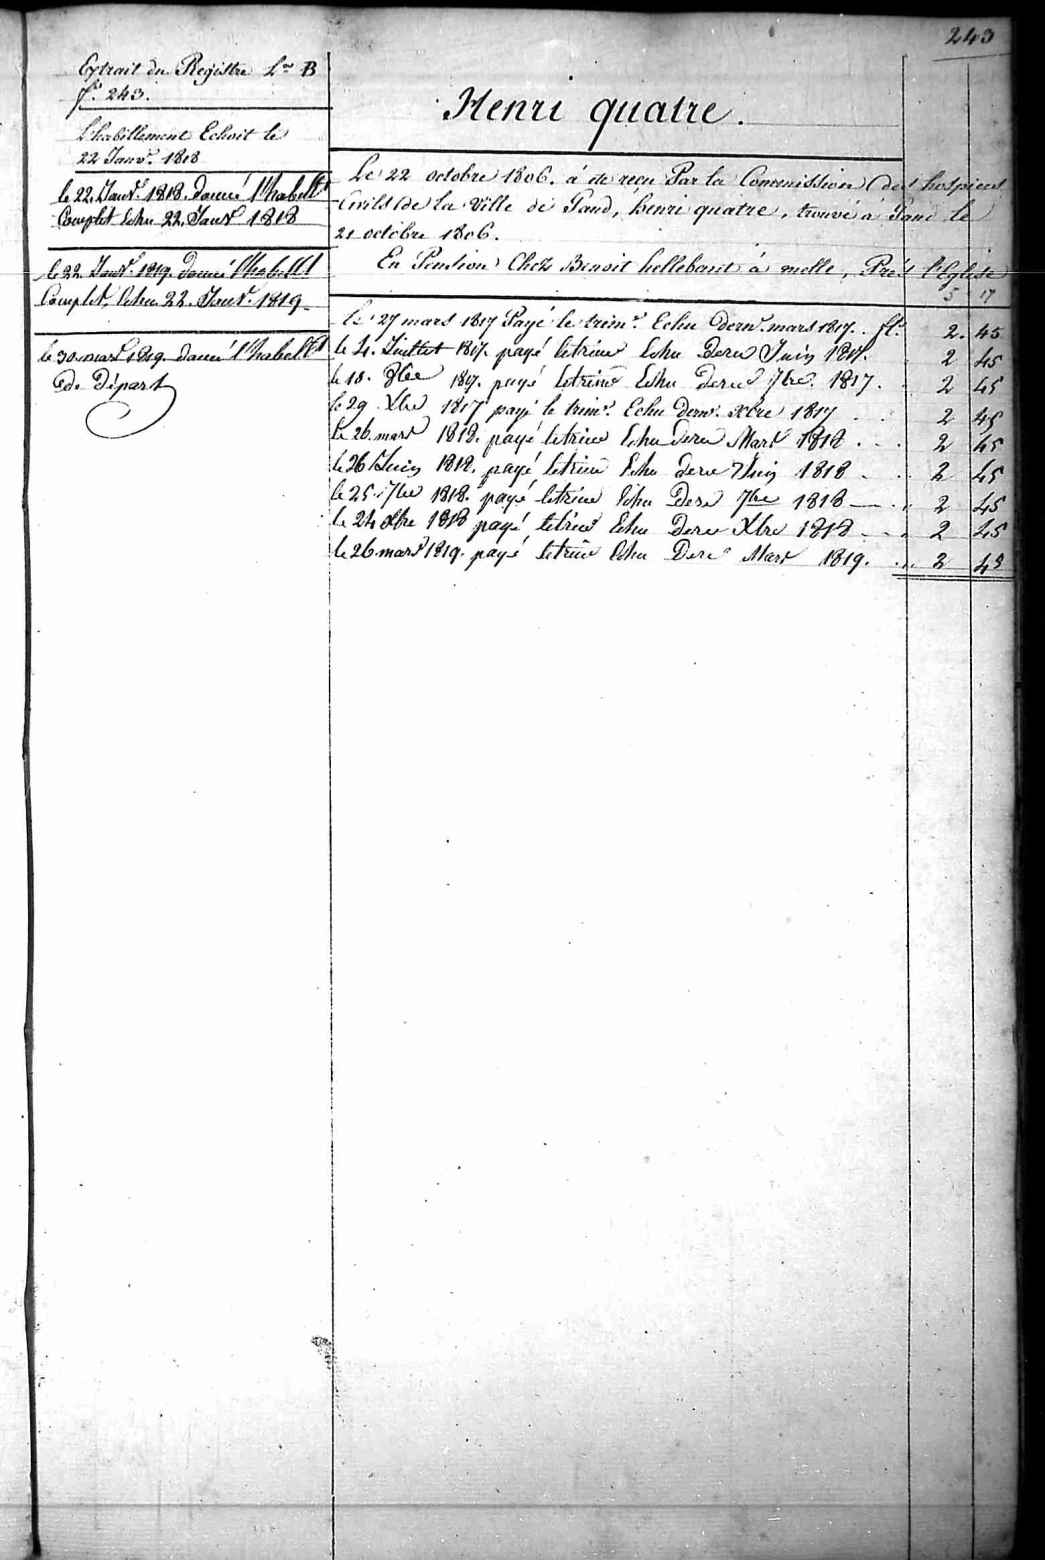 243
Extrait du Registre L.re B
f.o 243.
L'habillement Echoit le
22 Janv.r 1818
le 22. Janv.r 1818. donné l'habell.t
Complet Echu 22. Janv.r 1818
le 22 Janv.r 1819. donné l'habell.t
Complet, Echu 22. Janv.r 1819
le 30 mars 1819. donné l'habell.t
de Départ
Henri quatre.
Le 22 octobre 1806. à été reçu Par la Commission des hospices
Civils de la Ville de Gand, henri quatre, trouvé à Gand le
21 octobre 1806.
En Pension Chez Benoit hellebaut à melle, Prés l'Eglise
5 17
le 27 mars 1817 Payé le trim.e Echu dern.r mars 1817. fl.s 2. 45
le 4. Juillet 1817. payé letrim Echu Dern Juin 1817. 2 45
le 18. 8bre 1817. payé letrim Echu dern 7bre. 1817. 2 45
le 29 Xbre 1817 payé le trim.e Echu dern.r xbre 1817 2 45
le 26 mars 1818. payé letrim Echu dern Mars 1818 2 45
le 26 Juin 1818. payé letrim Echu dern Juin 1818 2 45
le 25. 7bre 1818. payé letrim Echu Dern 7bre 1818 2 45
le 24 Xbre 1818 payé letrim Echu Dern Xbre 1818 2 45
le 26 mars 1819. payé letrim Echu Dern Mars 1819. 2 45